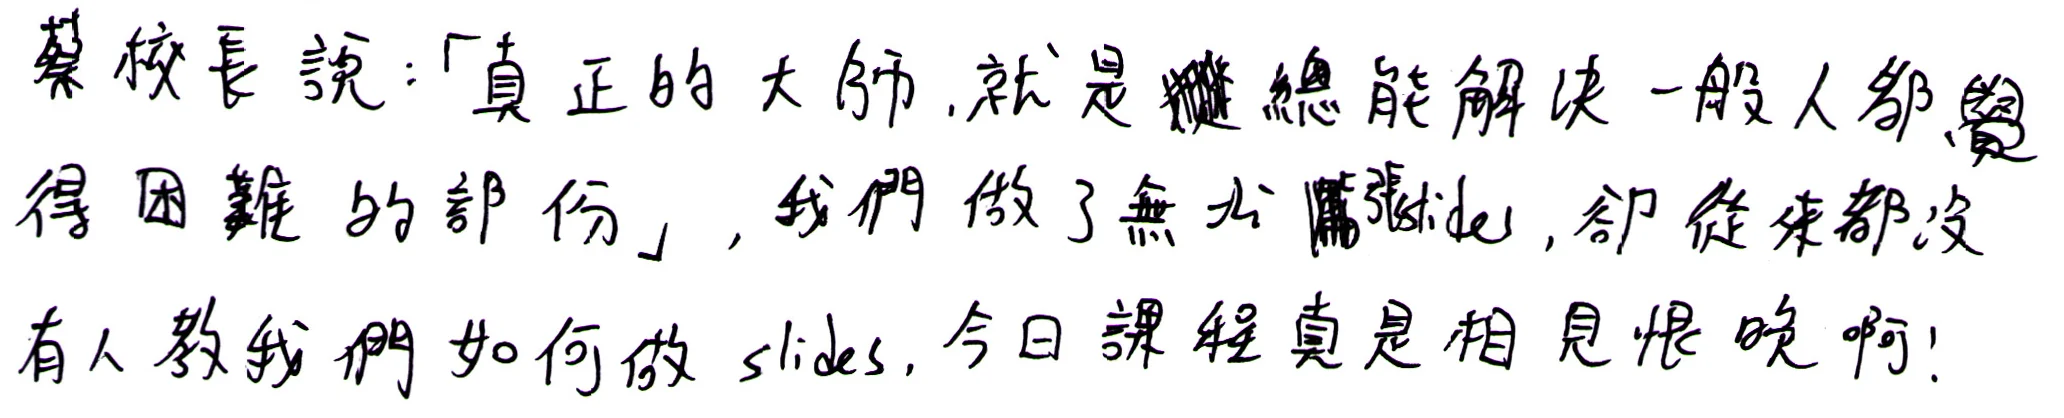 蔡校長說:「真正的大師,就是總能解決一般人都覺
得困難的部份」,我們做了無以張slides,卻從來都沒
有人教我們如何做slides,今日課程真是相見恨晚啊!